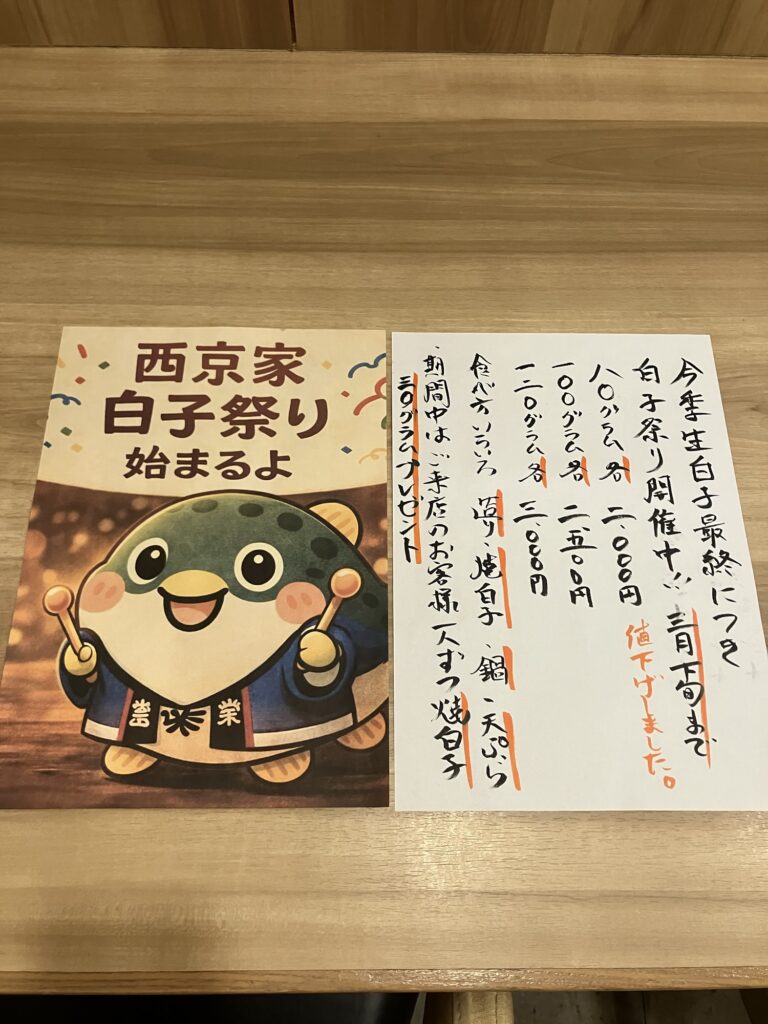 西京家
白子祭り
始まるよ
今季生白子最終につき
白子祭り開催中!! 三月下旬まで
値下げしました。
八〇グラム各 二、〇〇〇円
一〇〇グラム各 二、五〇〇円
一二〇グラム各 三、〇〇〇円
食べ方いろいろ 造り、焼白子、鍋、天ぷら
・期間中はご来店のお客様 一人ずつ焼白子
三〇グラムプレゼント